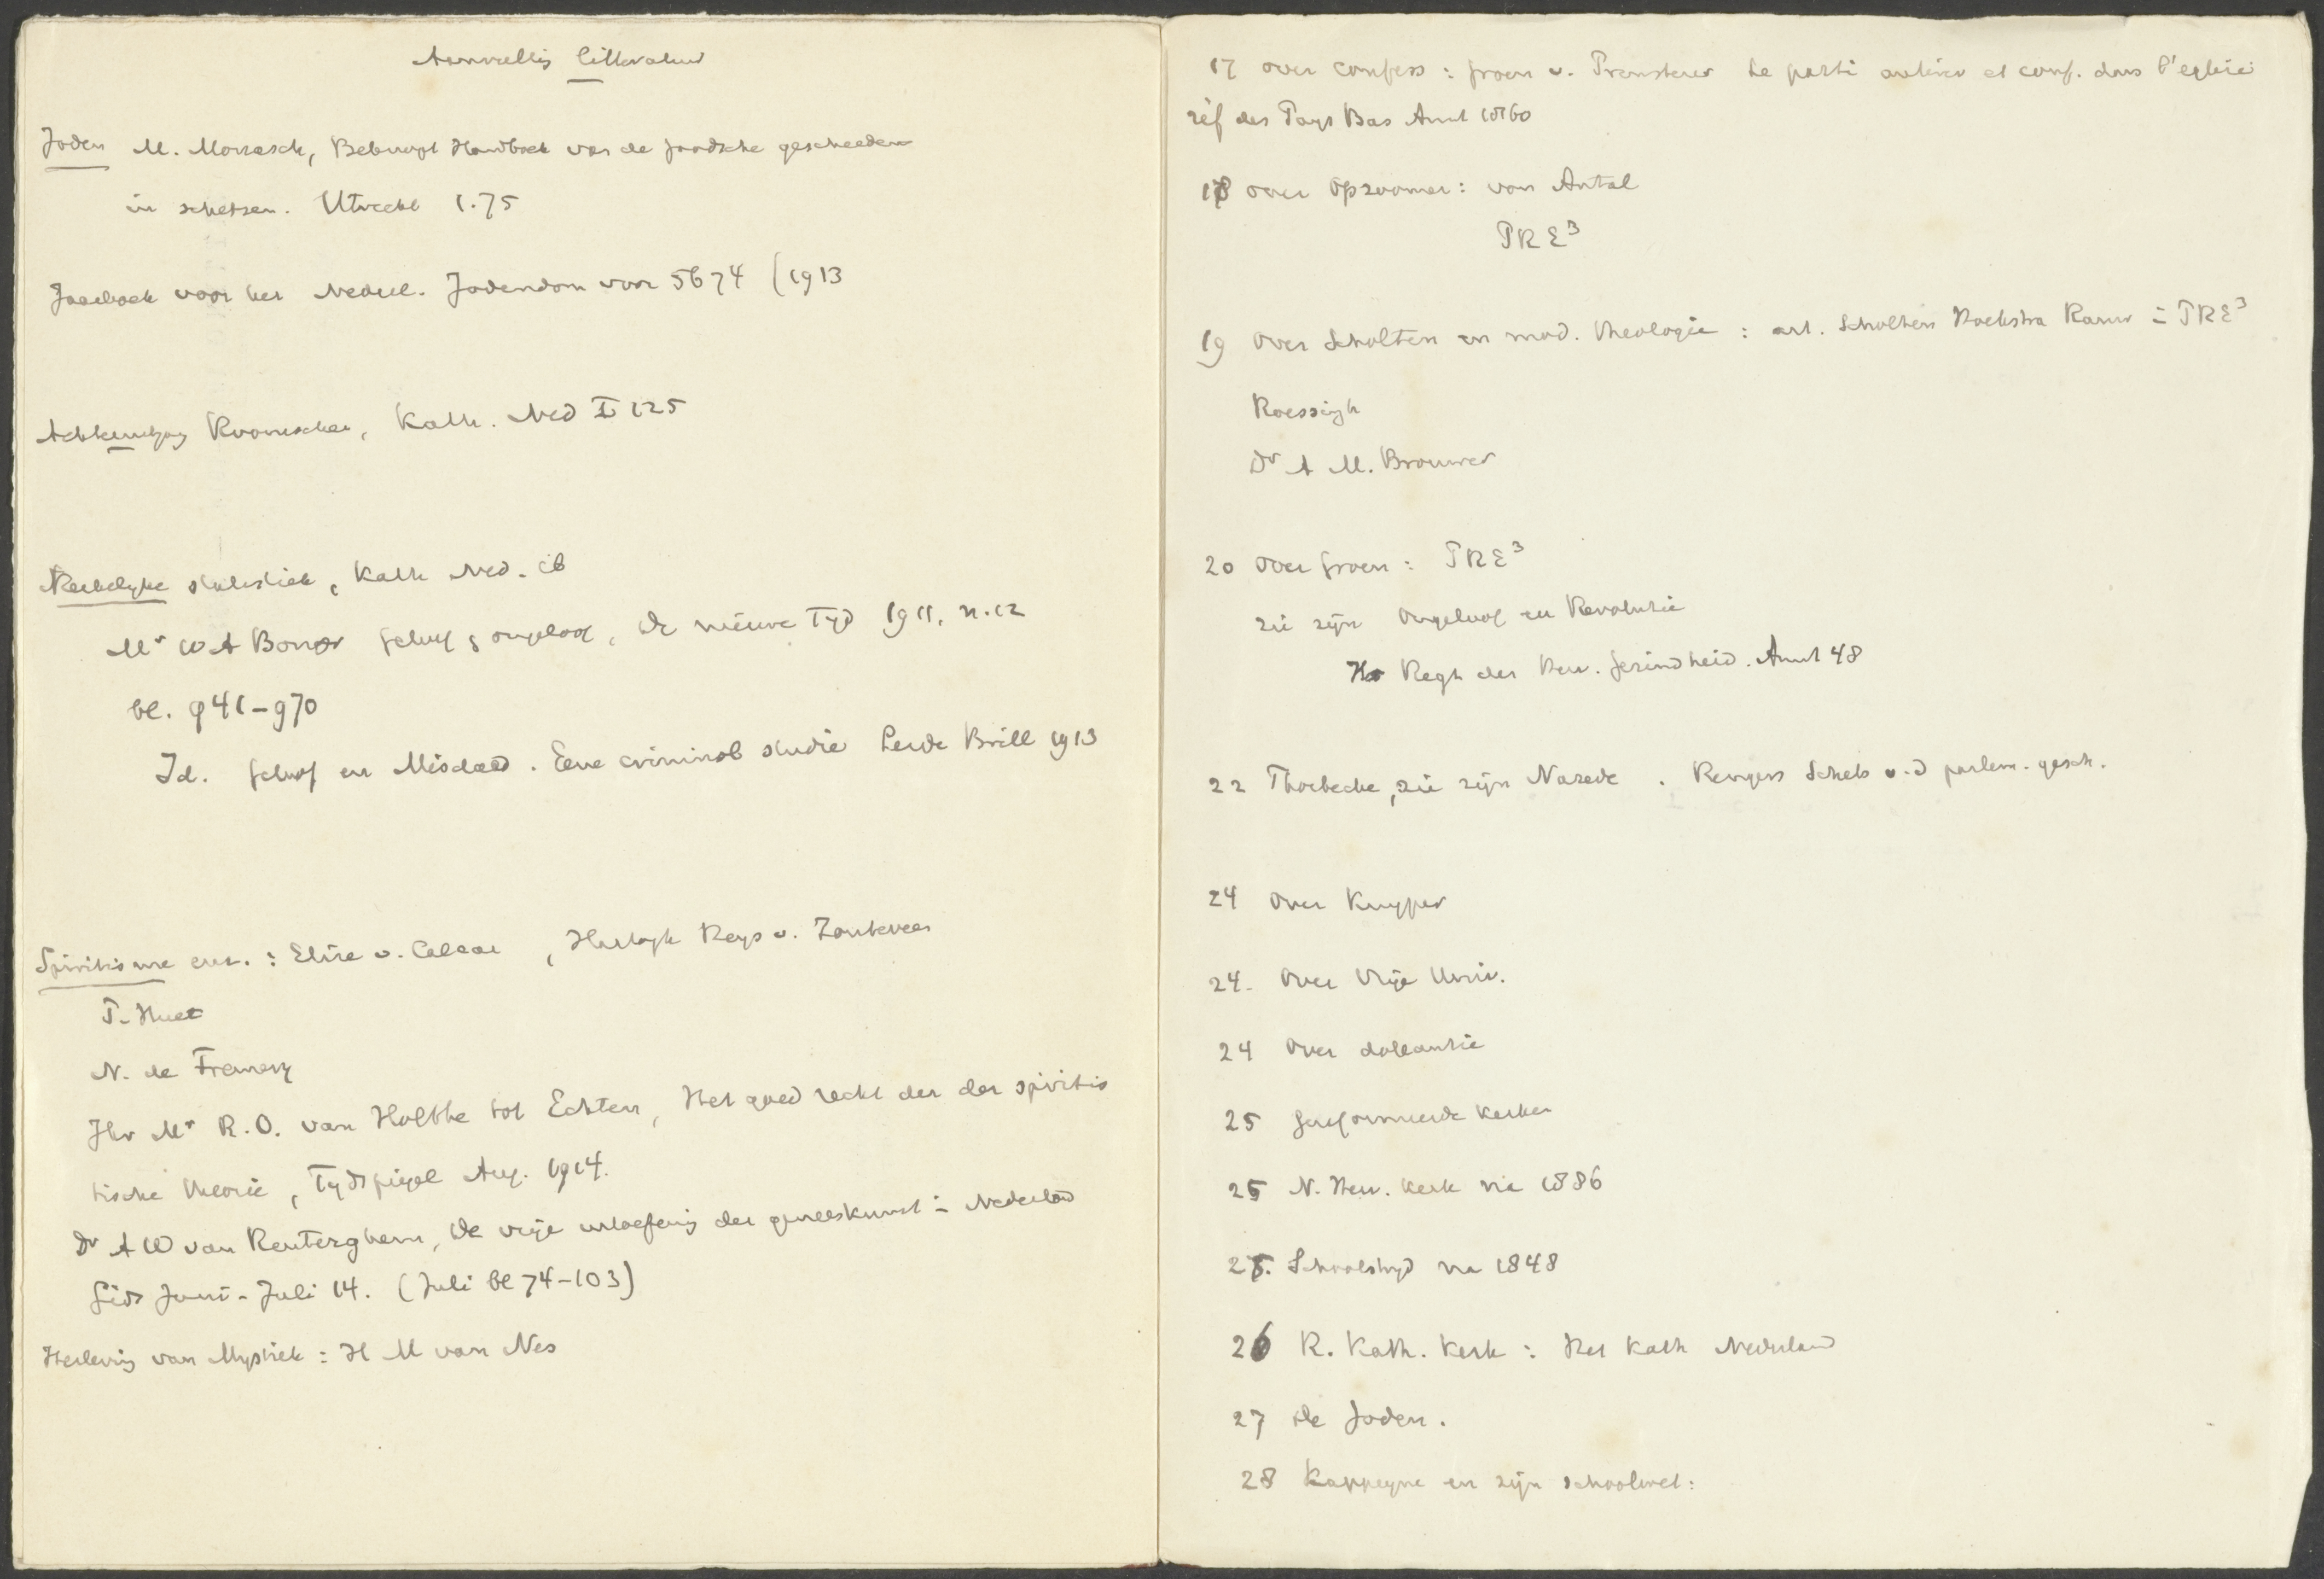 Aanvulling litteratuur
Joden M. Monasch, Beknopt Handboek van de joodsche geschieden
in schetsen. Utrecht 1.75
Jaarboek voor het Nederl. Jodendom voor 5674 (1913
Roomschen, Kath. Ned I 125
Kerkelyke statistiek, Kath Ned. ib
Mr W A Bonger Geloof & ongeloof, de nieuwe Tyd 1911, n. 12
bl. 941-970
Id. Geloof en Misdaad. Eene criminol studie Leide Brill 1913
Spiritisme enz. : Elise v. Calcar, Hartogh Heys v. Zouteveen
P. Huet
N. de Fremery
Jhr Mr R. O. van Holthe tot Echten, Het goed recht der der spiritis
tische theorie, Tydspiegel Aug. 1914.
Dr A W van Renterghem, De vrije uitoefening der geneeskunst in Nederland
Gids Juni-Juli 14. (Juli bl 74-103)
Herleving van Mystiek : H M van Nes
17 over confess : Groen v. Prinsterer Le parti antirev et conf. dans l'eglise
réf des Pays Bas Amst 1860
18 over Opzoomer : von Antal
PRE3
19 Over Scholten en mod. theologie : art. Scholten Hoekstra Rauw in PRE3
Roessingh
Dr A M. Brouwer
20 Over Groen : PRE3
zie zijn Ongeloof en Revolutie
Het Regt der Herv. Gezindheid. Amst 48
22 Thorbecke, zie zijn Narede . Rengers Schets v. d parlem. gesch.
24 Over Kuyper
24. Over Vrije Univ.
24 Over doleantie
25 Gereformeerde kerken
25 N. Herv. kerk na 1886
25. Schoolstryd na 1848
26 R. Kath. Kerk : Het Kath Nederland
27 De Joden.
28 Kappeyne en zijn schoolwet :